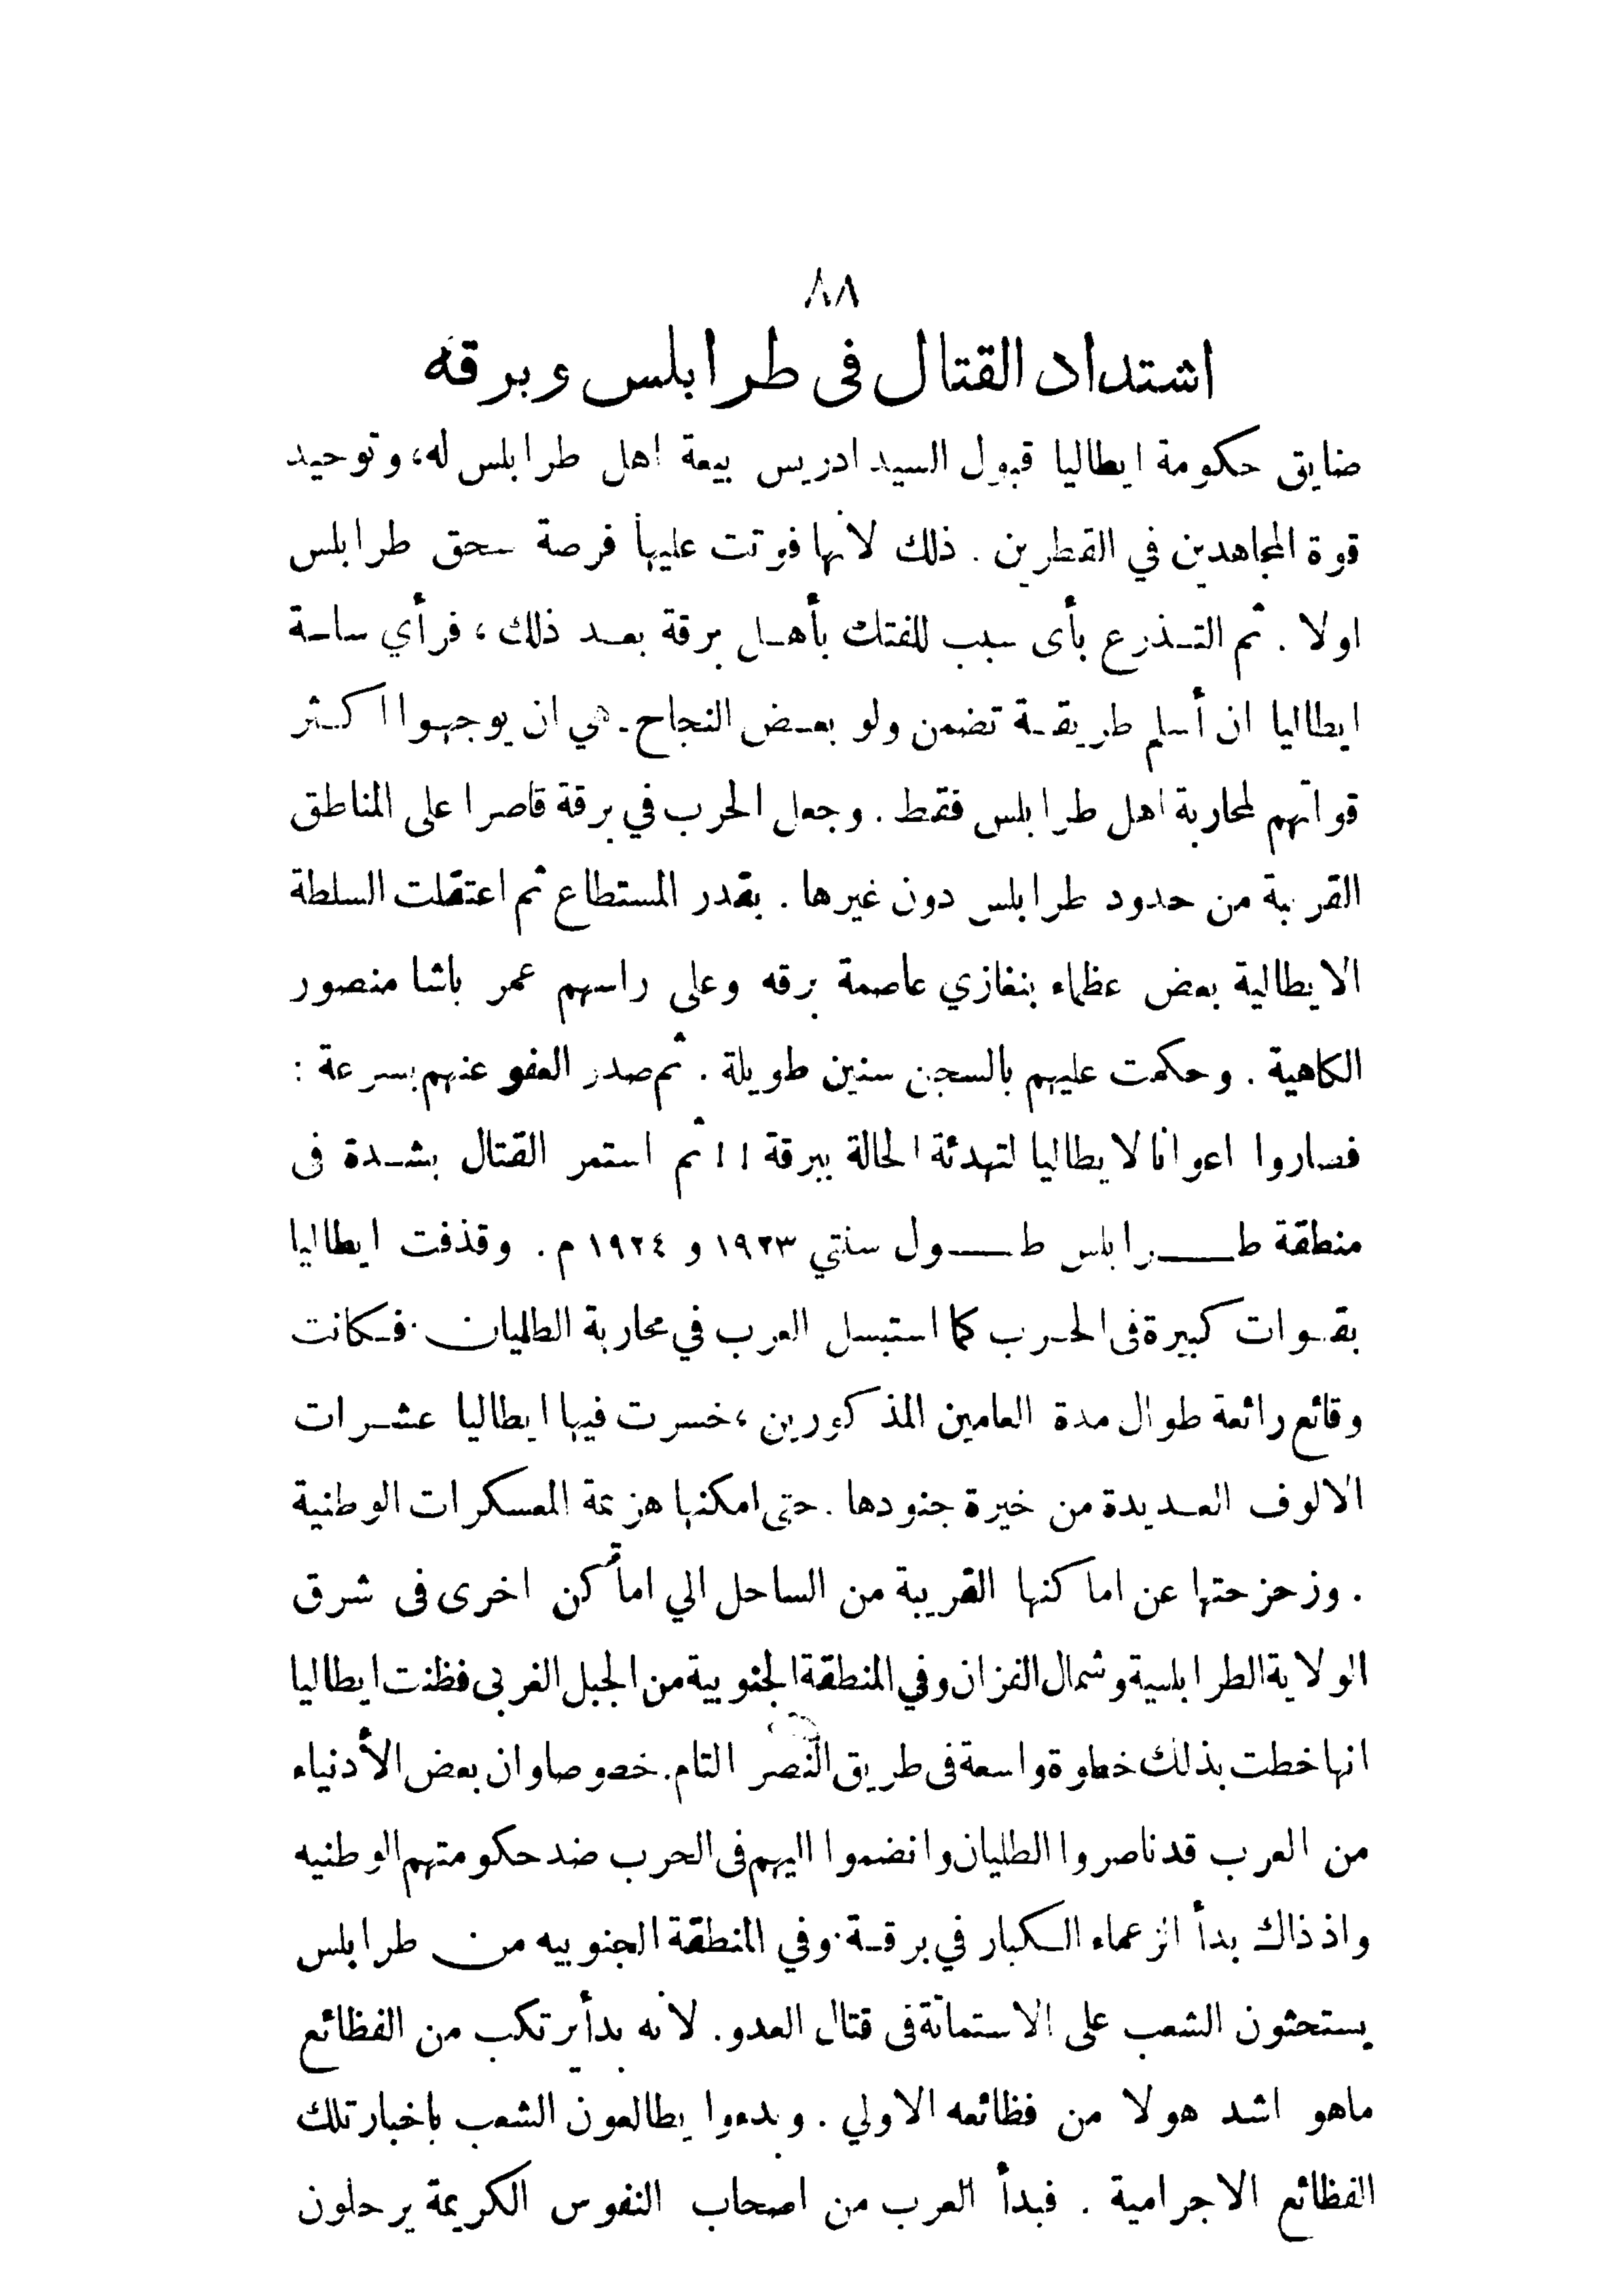 ٨٨
اشتداد القتال فى طرابلس وبرقه
ضايق حكومة ايطاليا قبول السيد ادريس بيعة اهل طرابلس له، وتوحيد
قوة المجاهدين في القطرين . ذلك لانها فوتت عليها فرصة سحق طرابلس
اولا . ثم التــذرع بأى سبب للفتك بأهــل برقة بعــد ذلك ، فرأي ساسة
ايطاليا ان أسلم طريقــة تضمن ولو بعــض النجاح ـ هي ان يوجهــوا اكــثر
قواتهم لمحاربة اهل طرابلس فقط . وجعل الحرب في برقة قاصرا على المناطق
القريبة من حدود طرابلس دون غيرها . بقدر المستطاع ثم اعتقلت السلطة
الايطالية بعض عظماء بنغازي عاصمة برقه وعلى راسهم عمر باشا منصور
الكاهية . وحكمت عليهم بالسجن سنين طويلة . ثم صدر العفو عنهم بسرعة :
فصاروا اعوانا لايطاليا لتهدئة الحالة ببرقة !! ثم استمر القتال بشــدة فى
منطقة طــــرابلس طــــول سنتي ١٩٢٣ و ١٩٢٤ م . وقذفت ايطاليا
بقــوات كبيرة فى الحــرب كما استبسل العرب في محاربة الطليان . فــكانت
وقائع رائعة طوال مدة العامين المذكورين ، خسرت فيها ايطاليا عشــرات
الالوف العــديدة من خيرة جنودها . حتى امكنها هزيمة المعسكرات الوطنية
. وزحزحتها عن اماكنها القريبة من الساحل الي اماكن اخرى فى شرق
الولاية الطرابلسية وشمال الفزان وفي المنطقة الجنوبية من الجبل الغربى فظنت ايطاليا
انها خطت بذلك خطوة واسعة فى طريق النصر التام . خصوصا وان بعض الأدنياء
من العرب قد ناصروا الطليان وانضموا اليهم فى الحرب ضد حكومتهم الوطنيه
واذ ذاك بدأ الزعماء الــكبار في برقــة . وفي المنطقة الجنوبيه من طرابلس
يستحثون الشعب على الاستماتة فى قتال العدو . لانه بدأ يرتكب من الفظائع
ماهو اشد هولا من فظائعه الاولي . وبدءوا يطالعون الشعب باخبار تلك
الفظائع الاجرامية . فبدأ العرب من اصحاب النفوس الكريمة يرحلون